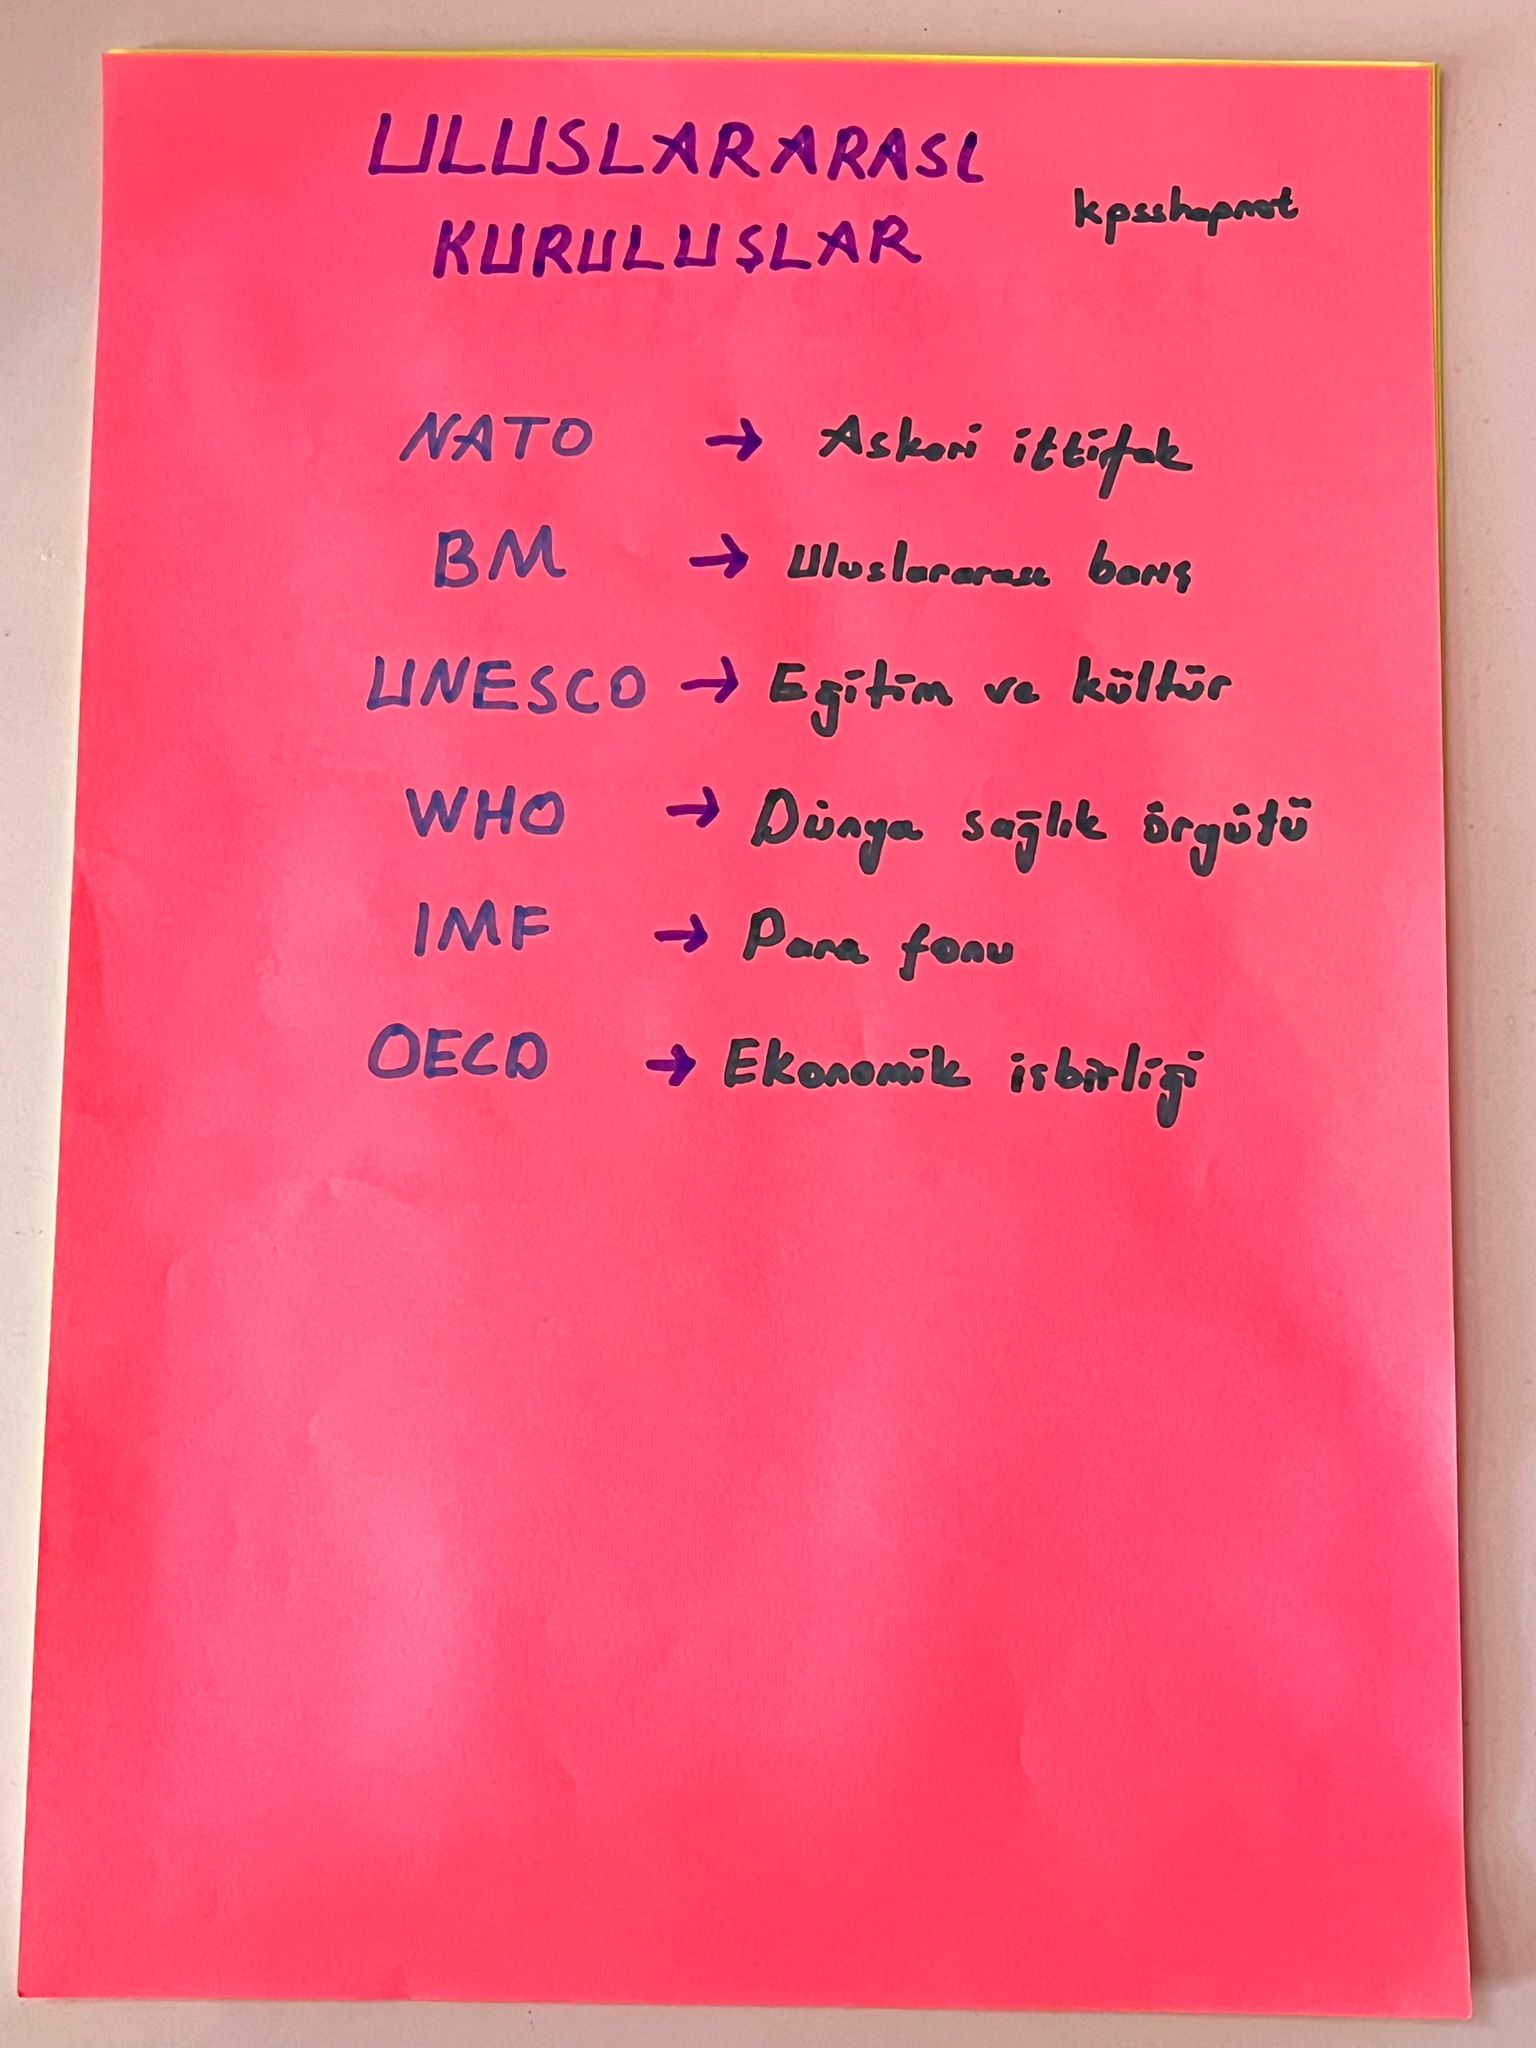 ULUSLARARASI
KURULUŞLAR
kpsshapnot
NATO → Askeri ittifak
BM → Uluslararası barış
UNESCO → Eğitim ve kültür
WHO → Dünya sağlık örgütü
IMF → Para fonu
OECD → Ekonomik isbirliği